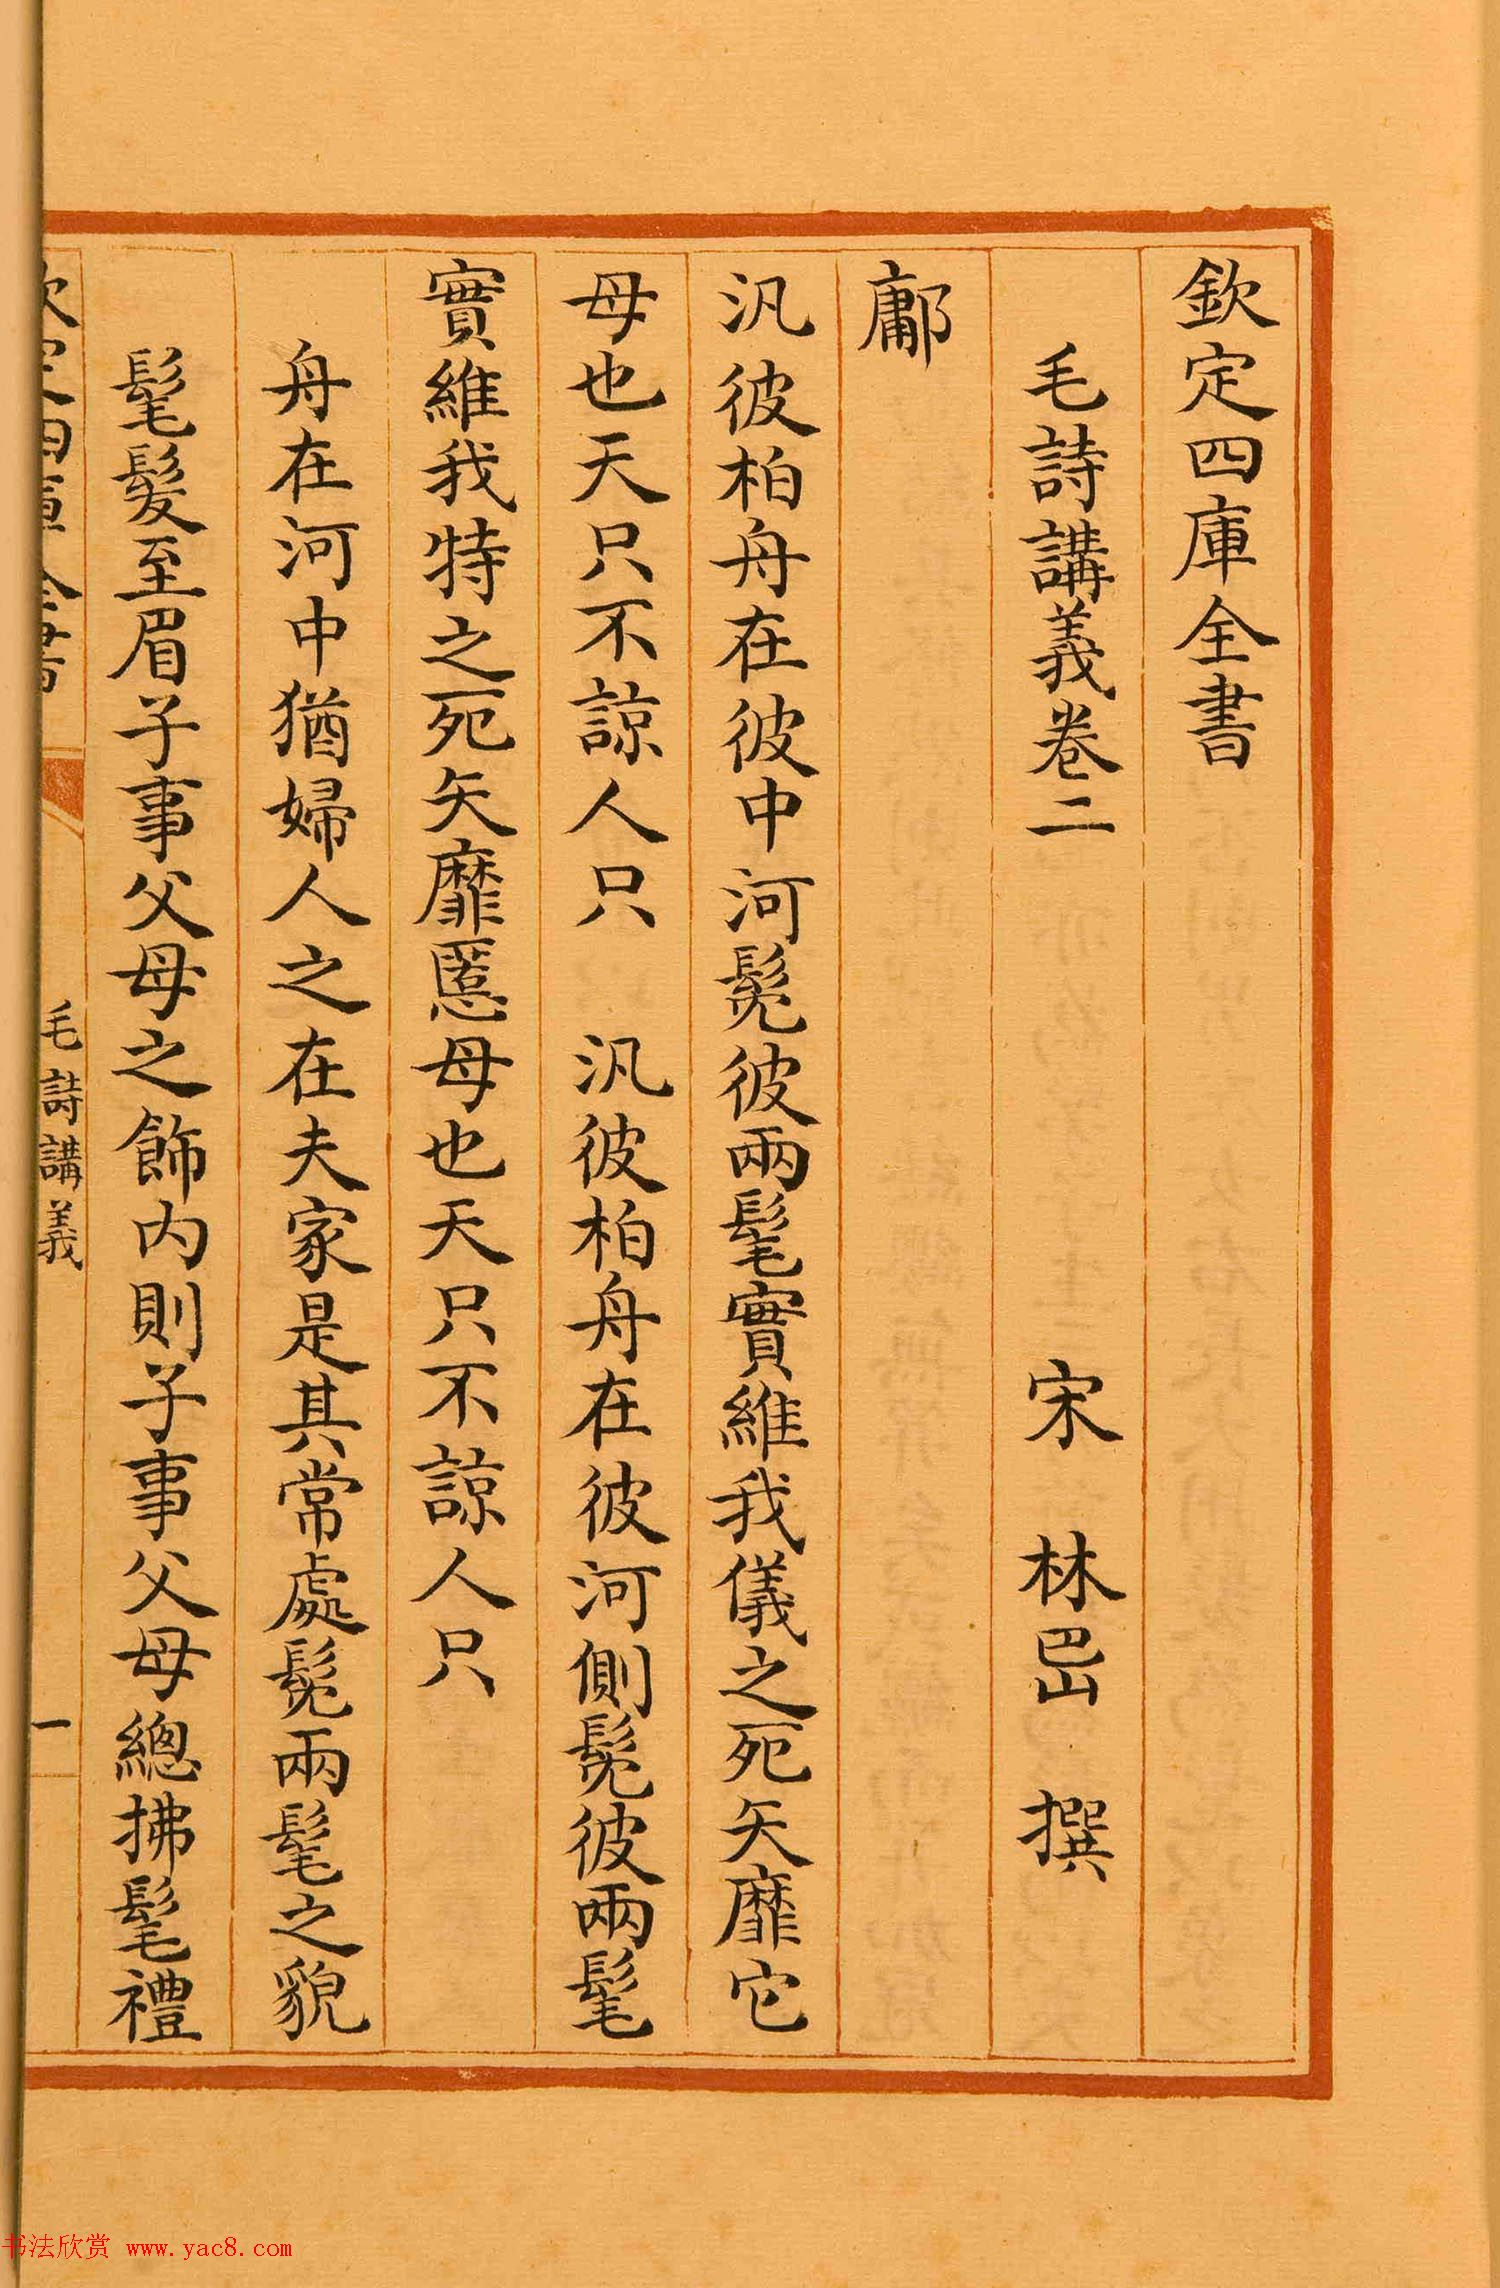 欽定四庫全書
毛詩講義卷二　宋　林岊　撰
鄘
汎彼柏舟在彼中河髧彼兩髦實維我儀之死矢靡它
母也天只不諒人只　汎彼柏舟在彼河側髧彼兩髦
實維我特之死矢靡慝母也天只不諒人只
舟在河中猶婦人之在夫家是其常處髧兩髦之貌
髦髮至眉子事父母之飾内則子事父母總拂髦禮
欽定四庫全書　毛詩講義　一
书法欣赏 www.yac8.com